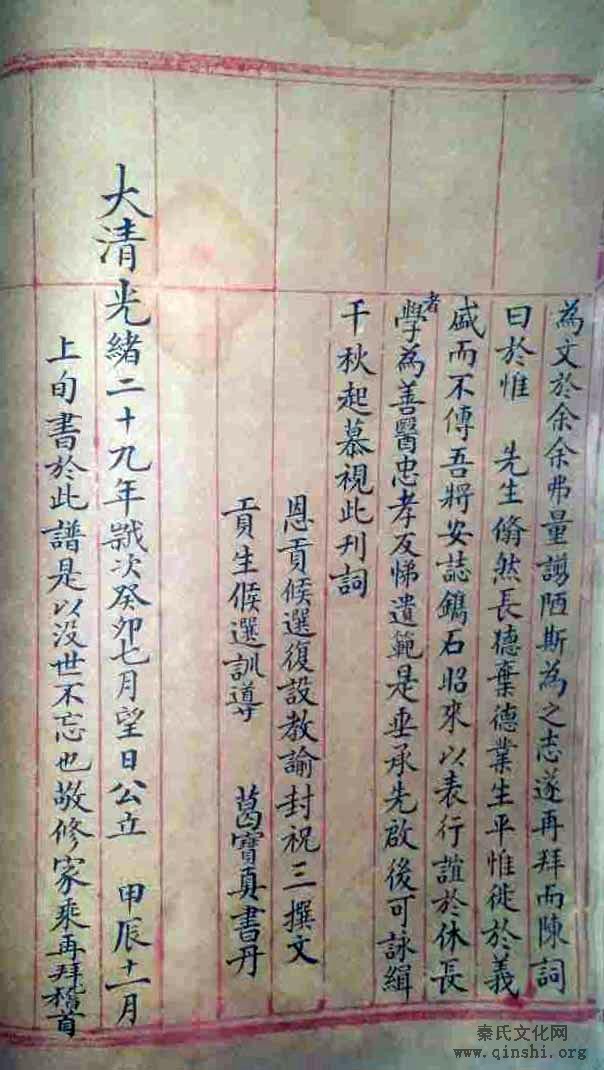 為文於余余弗量謭陋斯為之志遂再拜而陳詞
曰於惟 先生翛然長德棄德業生平惟徙於義
盛而不傳吾將安誌鐫石昭來以表行誼於休長
者學為善醫忠孝友悌遺範是垂承先啟後可詠緝
千秋起慕視此刊詞
恩貢候選復設教諭封祝三撰文
貢生候選訓導 葛寶真書丹
大清光緒二十九年歲次癸卯七月望日公立 甲辰十一月
上旬書於此譜是以没世不忘也敬修家乘再拜稽首
秦氏文化网
www.qinshi.org